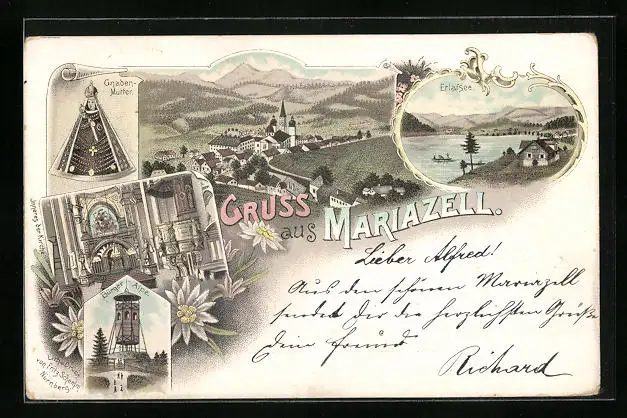 Gnaden-
Mutter.
Erlafsee.
GRUSS
aus MARIAZELL.
Inneres der Kirche
Bürger Alpe.
von Fritz Schardt, Nürnberg.
Lieber Alfred!
Aus dem schönen Mariazell
sendet Dir die herzlichsten Grüße
Dein Freund
Richard